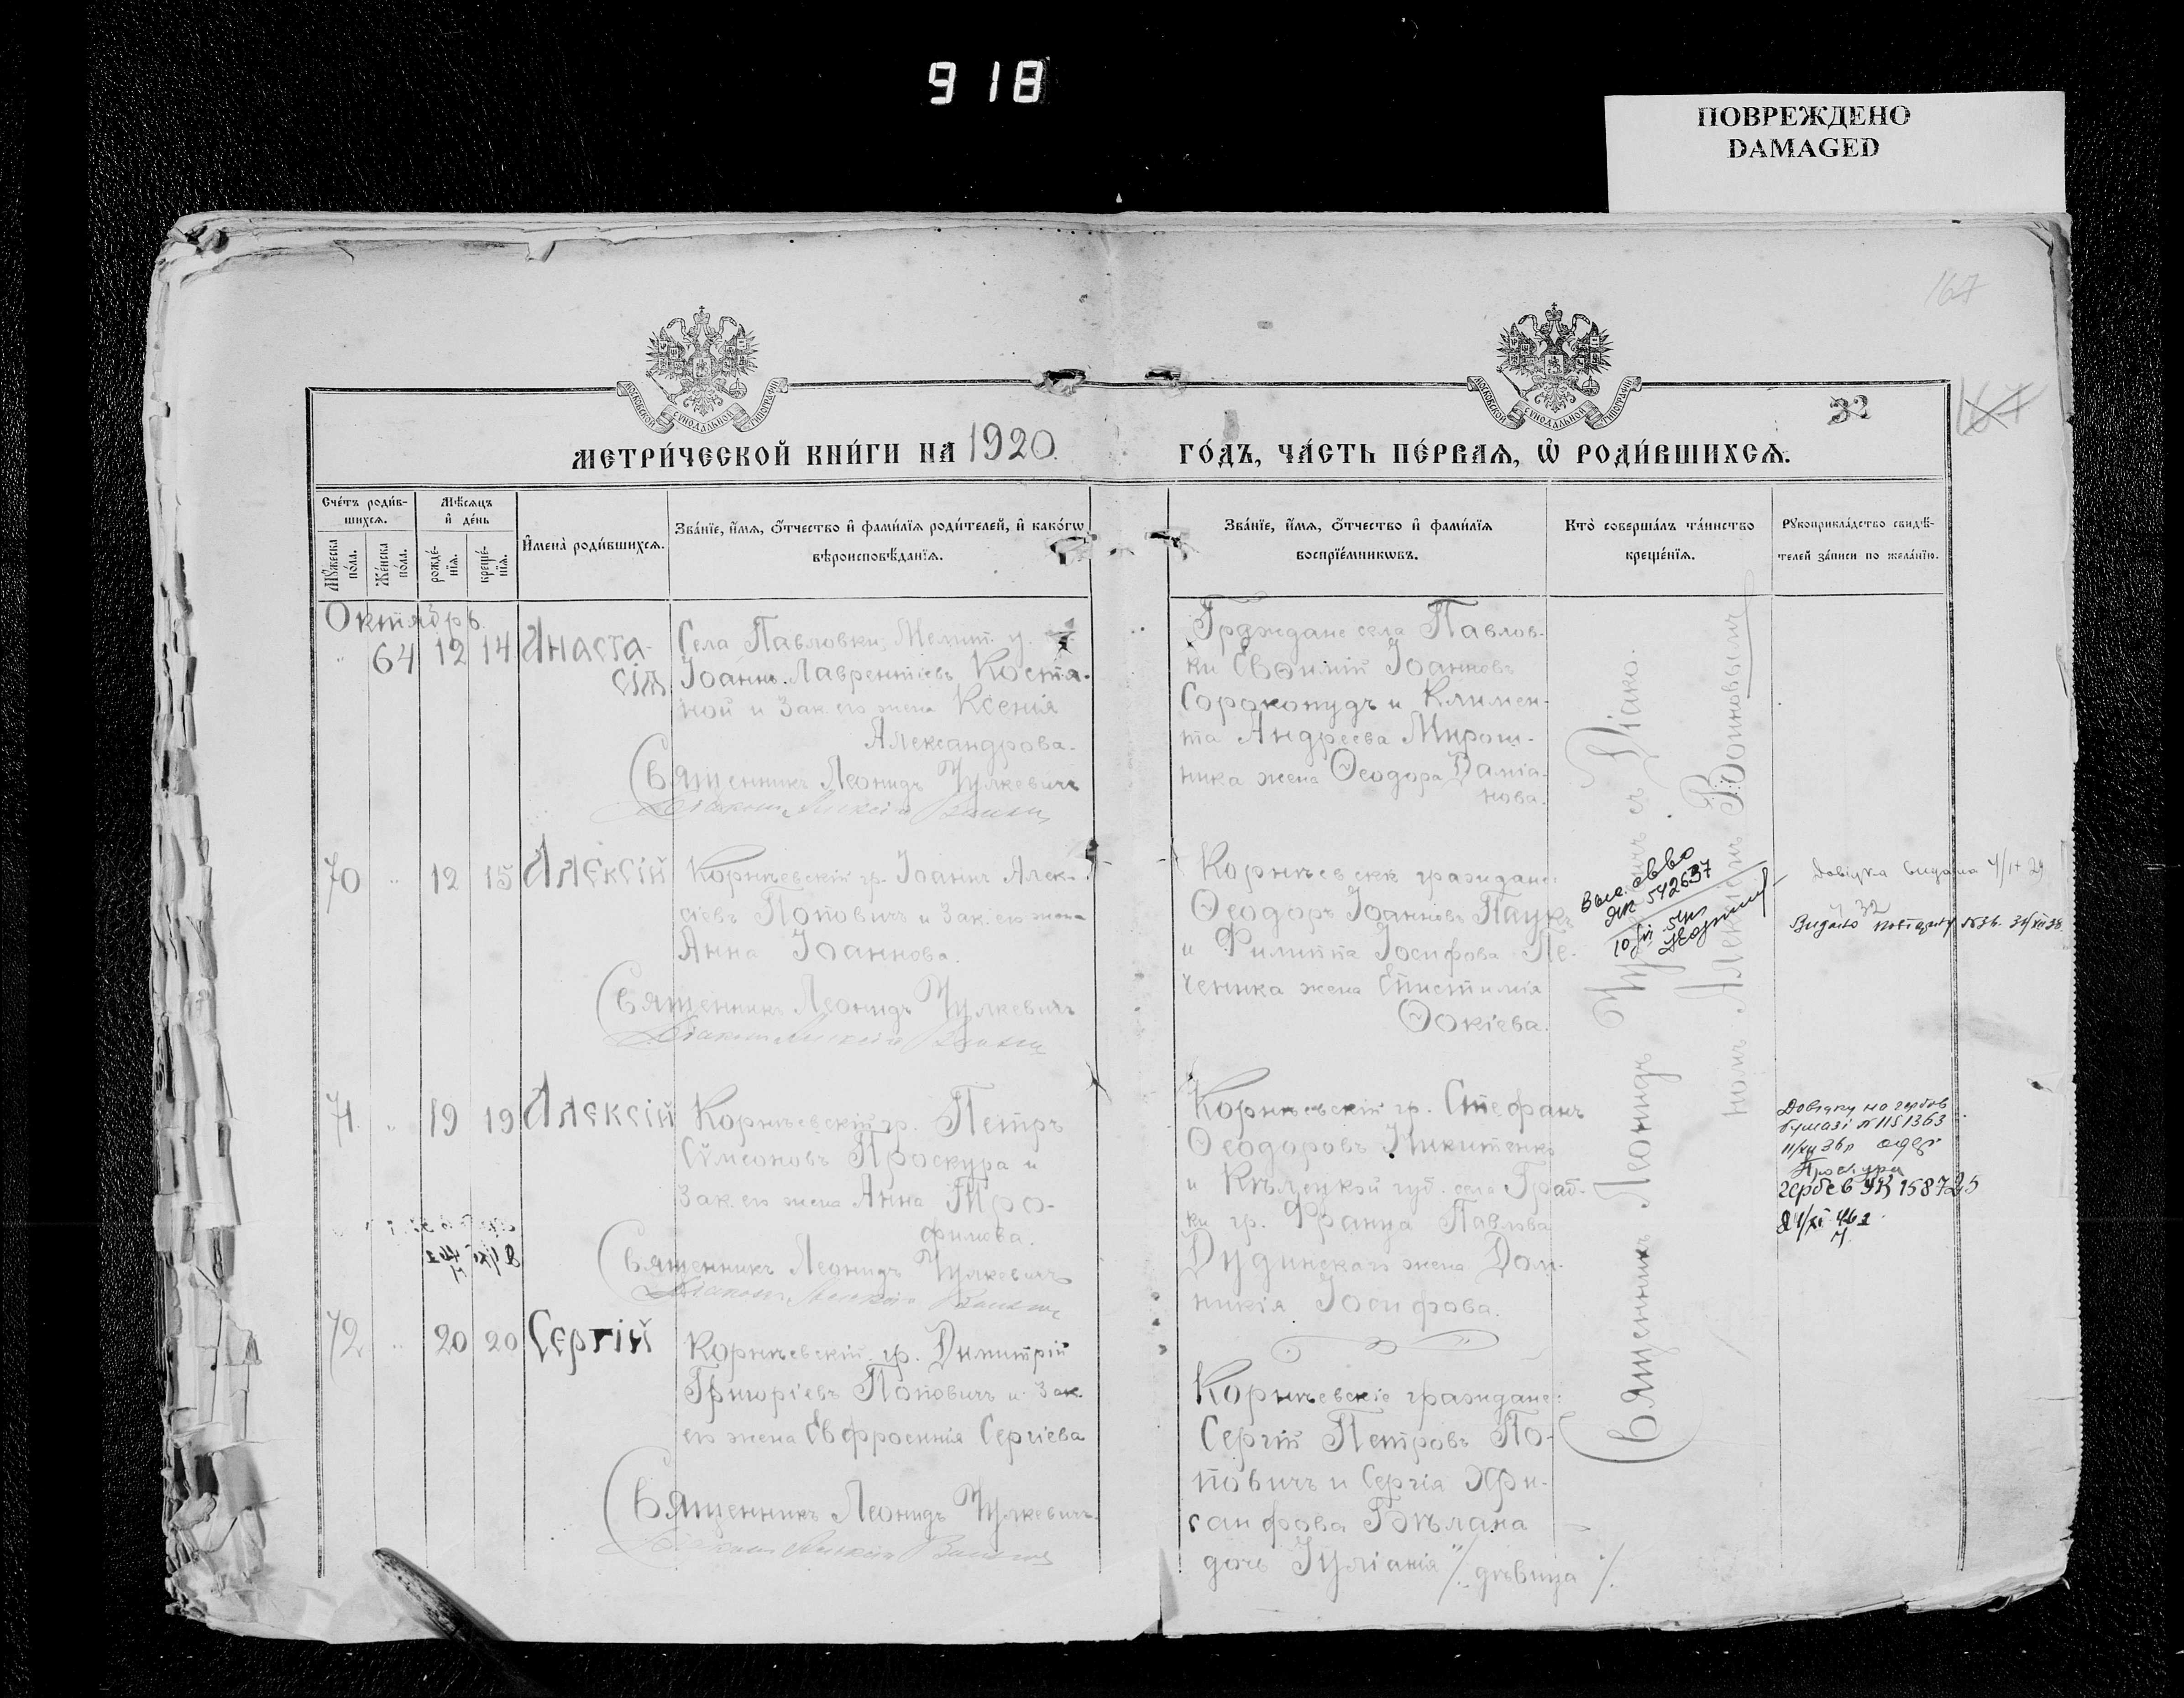 918
ПОВРЕЖДЕНО
DAMAGED
167
32
167
МЕТРИ́ЧЕСКОЙ КНИ́ГИ НА 1920
ГО́ДЪ, ЧА́СТЬ ПЕ́РВАѦ, Ѽ РОДИ́ВШИХСѦ.
Сче́тъ роди́в-
шихсѧ.
Мѣ́сѧцъ
и҆ де́нь
Мꙋ́жеска по́ла.
Же́нска по́ла.
рожде́-нїѧ.
креще́-нїѧ.
И҆мена̀ роди́вшихсѧ.
Зва́нїе, и҆́мѧ, ѻ҆́тчество и҆ фами́лїѧ роди́телей, и҆ како́гѡ
вѣроисповѣ́данїѧ.
Зва́нїе, и҆́мѧ, ѻ҆́тчество и҆ фами́лїѧ
воспрїе́мникѡвъ.
Кто̀ соверша́лъ та́инство
креще́нїѧ.
Рꙋкоприкла́дство свидѣ́-
телей за́писи по жела́нїю.
Октябрь.
" 64 12 14 Анаста-
сія
Села Павловки, Мелит. у.
Іоаннъ Лаврентіевъ Костя-
ной и зак. его жена Ксенія
Александрова.
Священникъ Леонидъ Чулкевичъ
Граждане села Павлов-
ки Евѳимій Іоанновъ
Сорокопудъ и Климен-
та Андреева Мирош-
ника жена Ѳеодора Даміа-
нова.
70 " 12 15 Алексій
Корнѣевскій гр. Іоаннъ Алек-
сіевъ Поповичъ и зак. его жена
Анна Іоаннова.
Священникъ Леонидъ Чулкевичъ
Корнѣевскіе граждане:
Ѳеодоръ Іоанновъ Паукъ
и Филиппа Іосифова Пе-
ченика жена Епистимія
Ѳокіева.
542637
Довідка видана
Видано
71. " 19 19 Алексій
Корнѣевскій гр. Петръ
Сѵмеоновъ Проскура и
зак. его жена Анна Тро-
фимова.
Священникъ Леонидъ Чулкевичъ
Корнѣевскій гр. Стефанъ
Ѳеодоровъ Никитенко
и Кѣлецкой губ. села Граб-
ки гр. Франца Павлова
Дудинскаго жена Дом-
никія Іосифова.
Довідку на гербов
бумазі № 1151363
11/XII 36р одер
Проскура
гербов УЯ 158725
72 " 20 20 Сергій
Корнѣевскій гр. Димитрій
Григоріевъ Поповичъ и зак.
его жена Евфросинія Сергіева
Священникъ Леонидъ Чулкевичъ
Корнѣевскіе граждане:
Сергій Петровъ По-
повичъ и Сергія Хри-
санфова Бѣлана
дочь Іуліанія /. дѣвица /.
Священникъ Леонидъ Чулкевичъ съ Діако-
номъ Алексіемъ